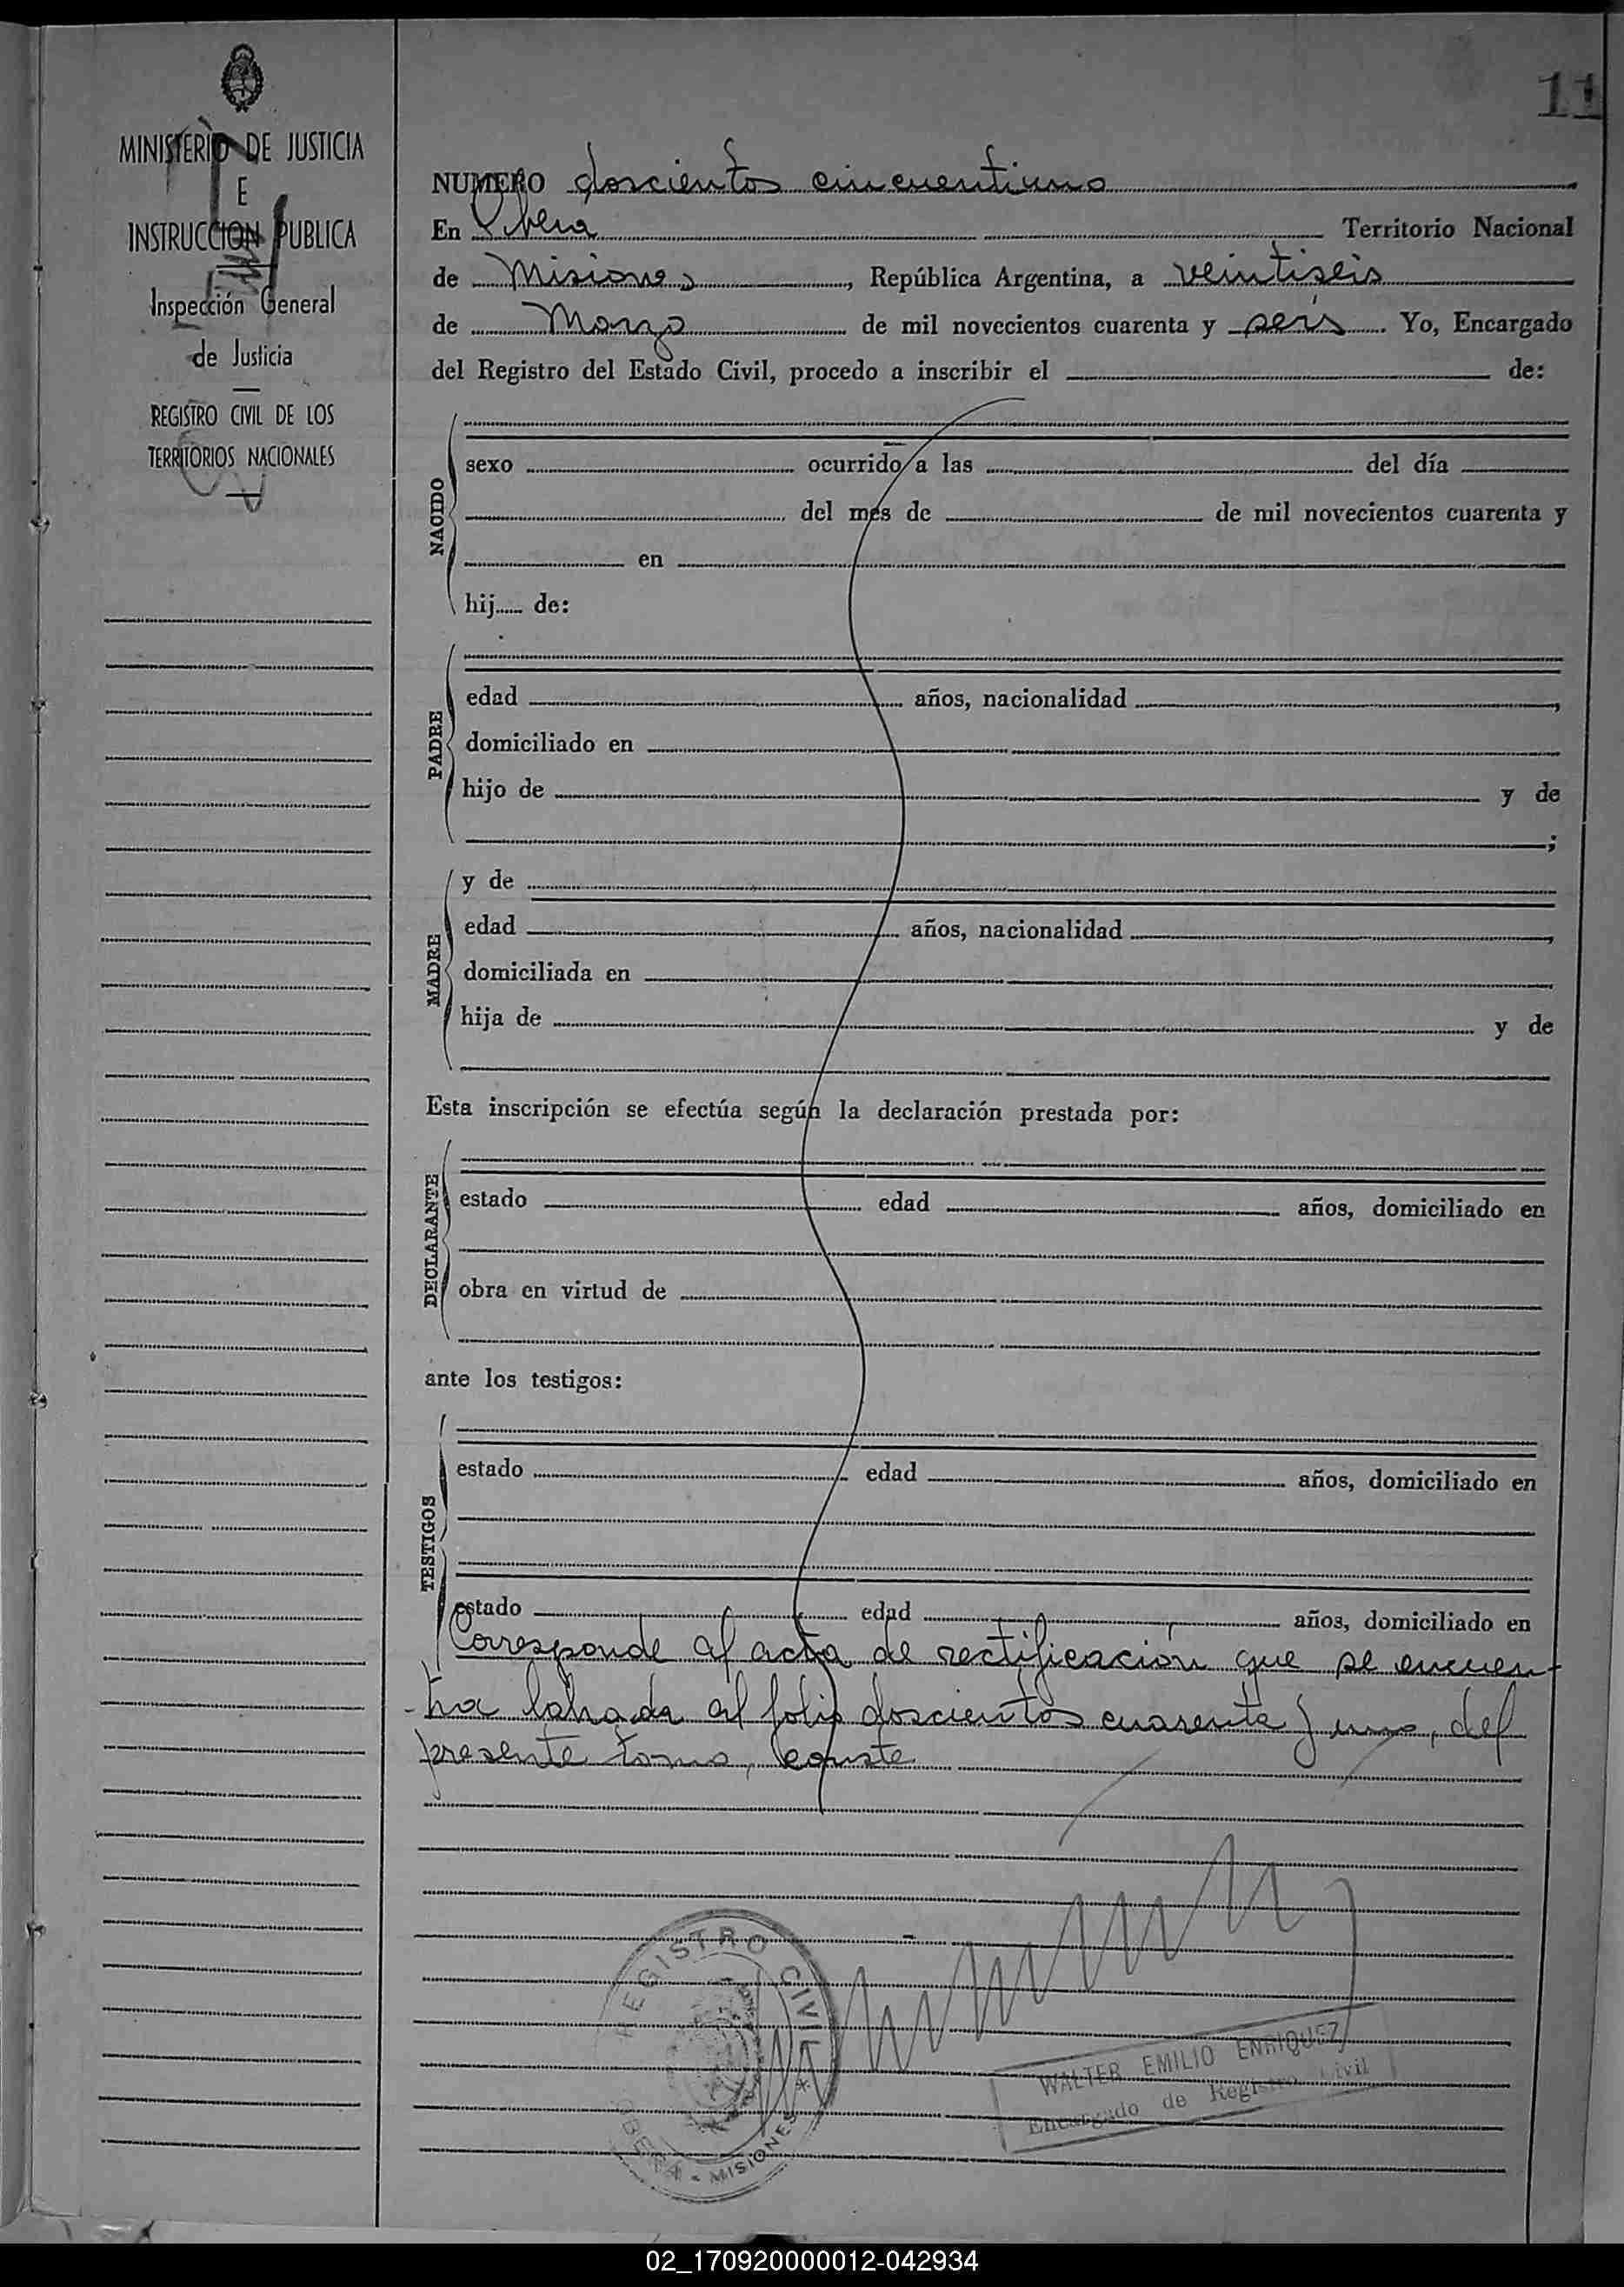 11
MINISTERIO DE JUSTICIA
E
INSTRUCCION PUBLICA
Inspección General
de Justicia
REGISTRO CIVIL DE LOS
TERRITORIOS NACIONALES
NUMERO doscientos cincuentiuno
En Obera Territorio Nacional
de Misiones, República Argentina, a veintiseis
de Marzo de mil novecientos cuarenta y seis. Yo, Encargado
del Registro del Estado Civil, procedo a inscribir el de:
NACIDO
sexo ocurrido a las del día
del mes de de mil novecientos cuarenta y
en
hij de:
PADRE
edad años, nacionalidad ,
domiciliado en
hijo de y de
;
MADRE
y de
edad años, nacionalidad ,
domiciliada en
hija de y de
Esta inscripción se efectúa según la declaración prestada por:
DECLARANTE
estado edad años, domiciliado en
obra en virtud de
ante los testigos:
TESTIGOS
estado edad años, domiciliado en
estado edad años, domiciliado en
Corresponde al acta de rectificación que se encuen-
-tra labrada al folio doscientos cuarenta y uno, del
presente tomo, conste
REGISTRO CIVIL
OBERA - MISIONES
WALTER EMILIO ENRIQUEZ
Encargado de Registro Civil
02_170920000012-042934